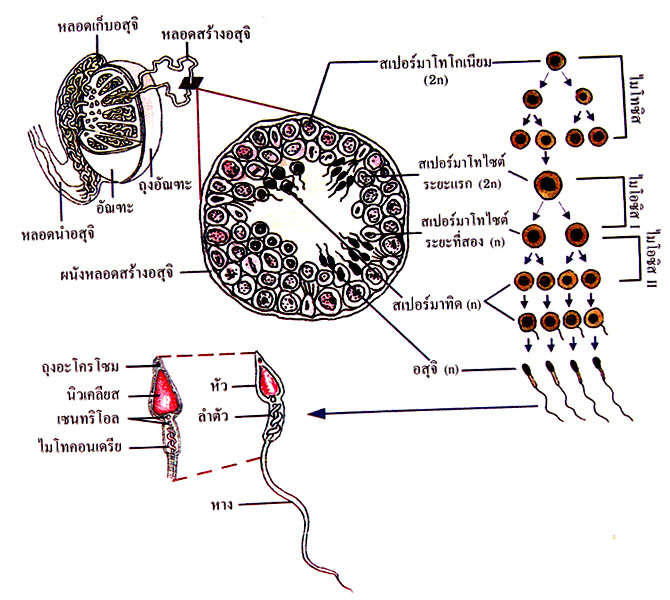 หลอดเก็บอสุจิ
หลอดสร้างอสุจิ
ถุงอัณฑะ
อัณฑะ
หลอดนำอสุจิ
ผนังหลอดสร้างอสุจิ
สเปอร์มาโทโกเนียม
(2n)
สเปอร์มาโทไซต์
ระยะแรก (2n)
สเปอร์มาโทไซต์
ระยะที่สอง (n)
สเปอร์มาทิด (n)
อสุจิ (n)
ไมโทซิส
ไมโอซิส I
ไมโอซิส II
ถุงอะโครโซม
นิวเคลียส
เซนทริโอล
ไมโทคอนเดรีย
หัว
ลำตัว
หาง